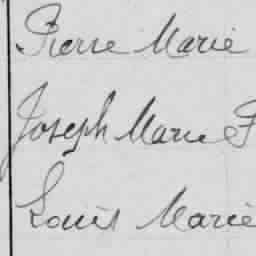 Pierre Marie
Joseph Marie F
Louis Marie